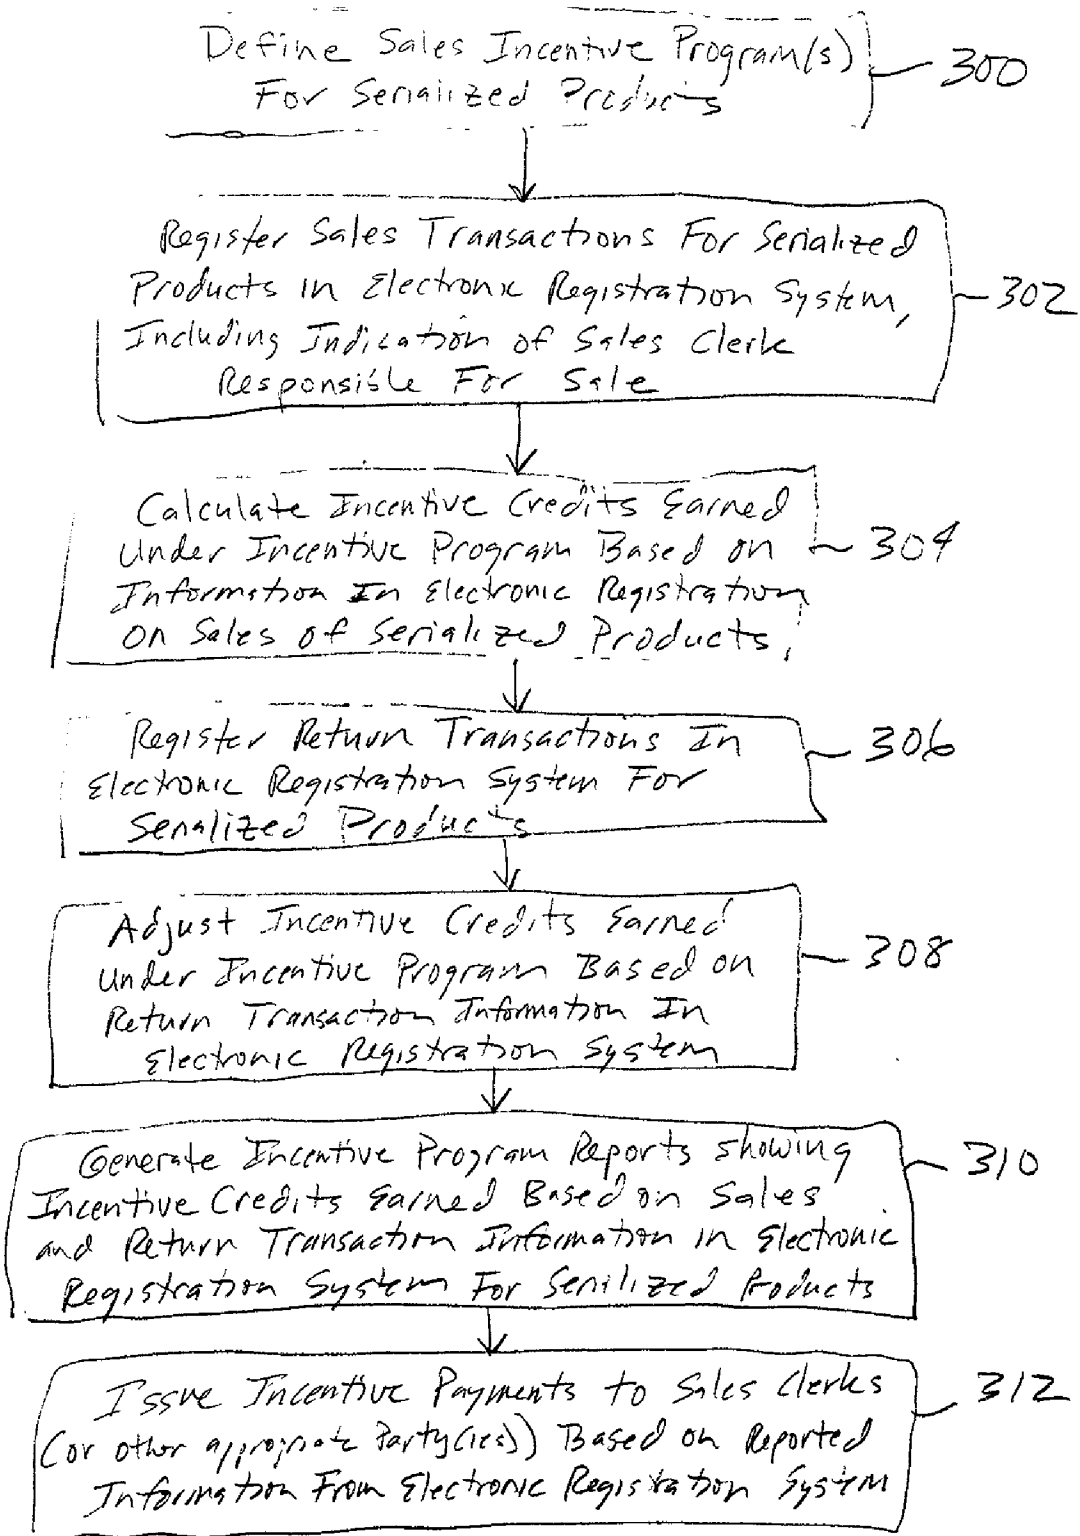 Define Sales Incentive Program(s)
For Serialized Products
300
Register Sales Transactions For Serialized
Products in Electronic Registration System,
Including Indication of Sales Clerk
Responsible For Sale
302
Calculate Incentive Credits Earned
Under Incentive Program Based on
Information In Electronic Registration
on Sales of Serialized Products,
304
Register Return Transactions In
Electronic Registration System For
Serialized Products
306
Adjust Incentive Credits Earned
Under Incentive Program Based on
Return Transaction Information In
Electronic Registration System
308
Generate Incentive Program Reports showing
Incentive Credits Earned Based on Sales
and Return Transaction Information in Electronic
Registration System For Serilized Products
310
Issue Incentive Payments to Sales Clerks
(or other appropriate Party(ies)) Based on Reported
Information From Electronic Registration System
312